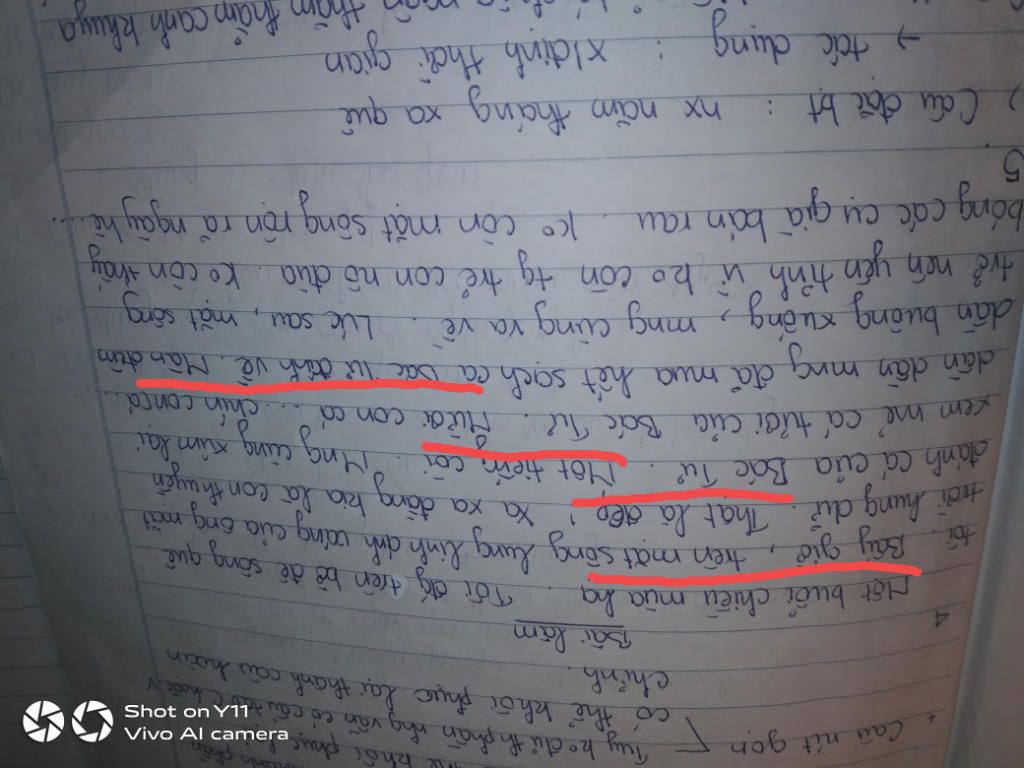 + Câu rút gọn
Tuy ko đủ th phần nhg vẫn có cấu tạo
có thể khôi phục lại thành câu hoàn
chỉnh.
Bài làm
4
Một buổi chiều mùa hạ. Tôi đg trên bờ đê sông quê
tôi. Bây giờ, trên mặt sông lung linh ánh vàng của ông mặt
trời hung dữ. Thật là đẹp, xa xa đằng kia là con thuyền
đánh cá của Bác Tư. Một tiếng còi. Mng cùng xúm lại
xem mẻ cá tươi của Bác Tư. Mười con cá ... chín con cá...
dần dần mng đã mua hết sạch cá bác Tư đánh về. Màn đêm
dần buông xuống, mng cùng ra về. Lúc sau, mặt sông
trở nên yên tĩnh vì ko còn tg trẻ con nô đùa. Ko còn thấy
bóng các cụ già bán rau. Ko còn mặt sông rộn rã ngày hè...
5.
Câu đặc bt : nx năm tháng xa quê
→ tác dụng : x/định thời gian
Shot on Y11
Vivo AI camera